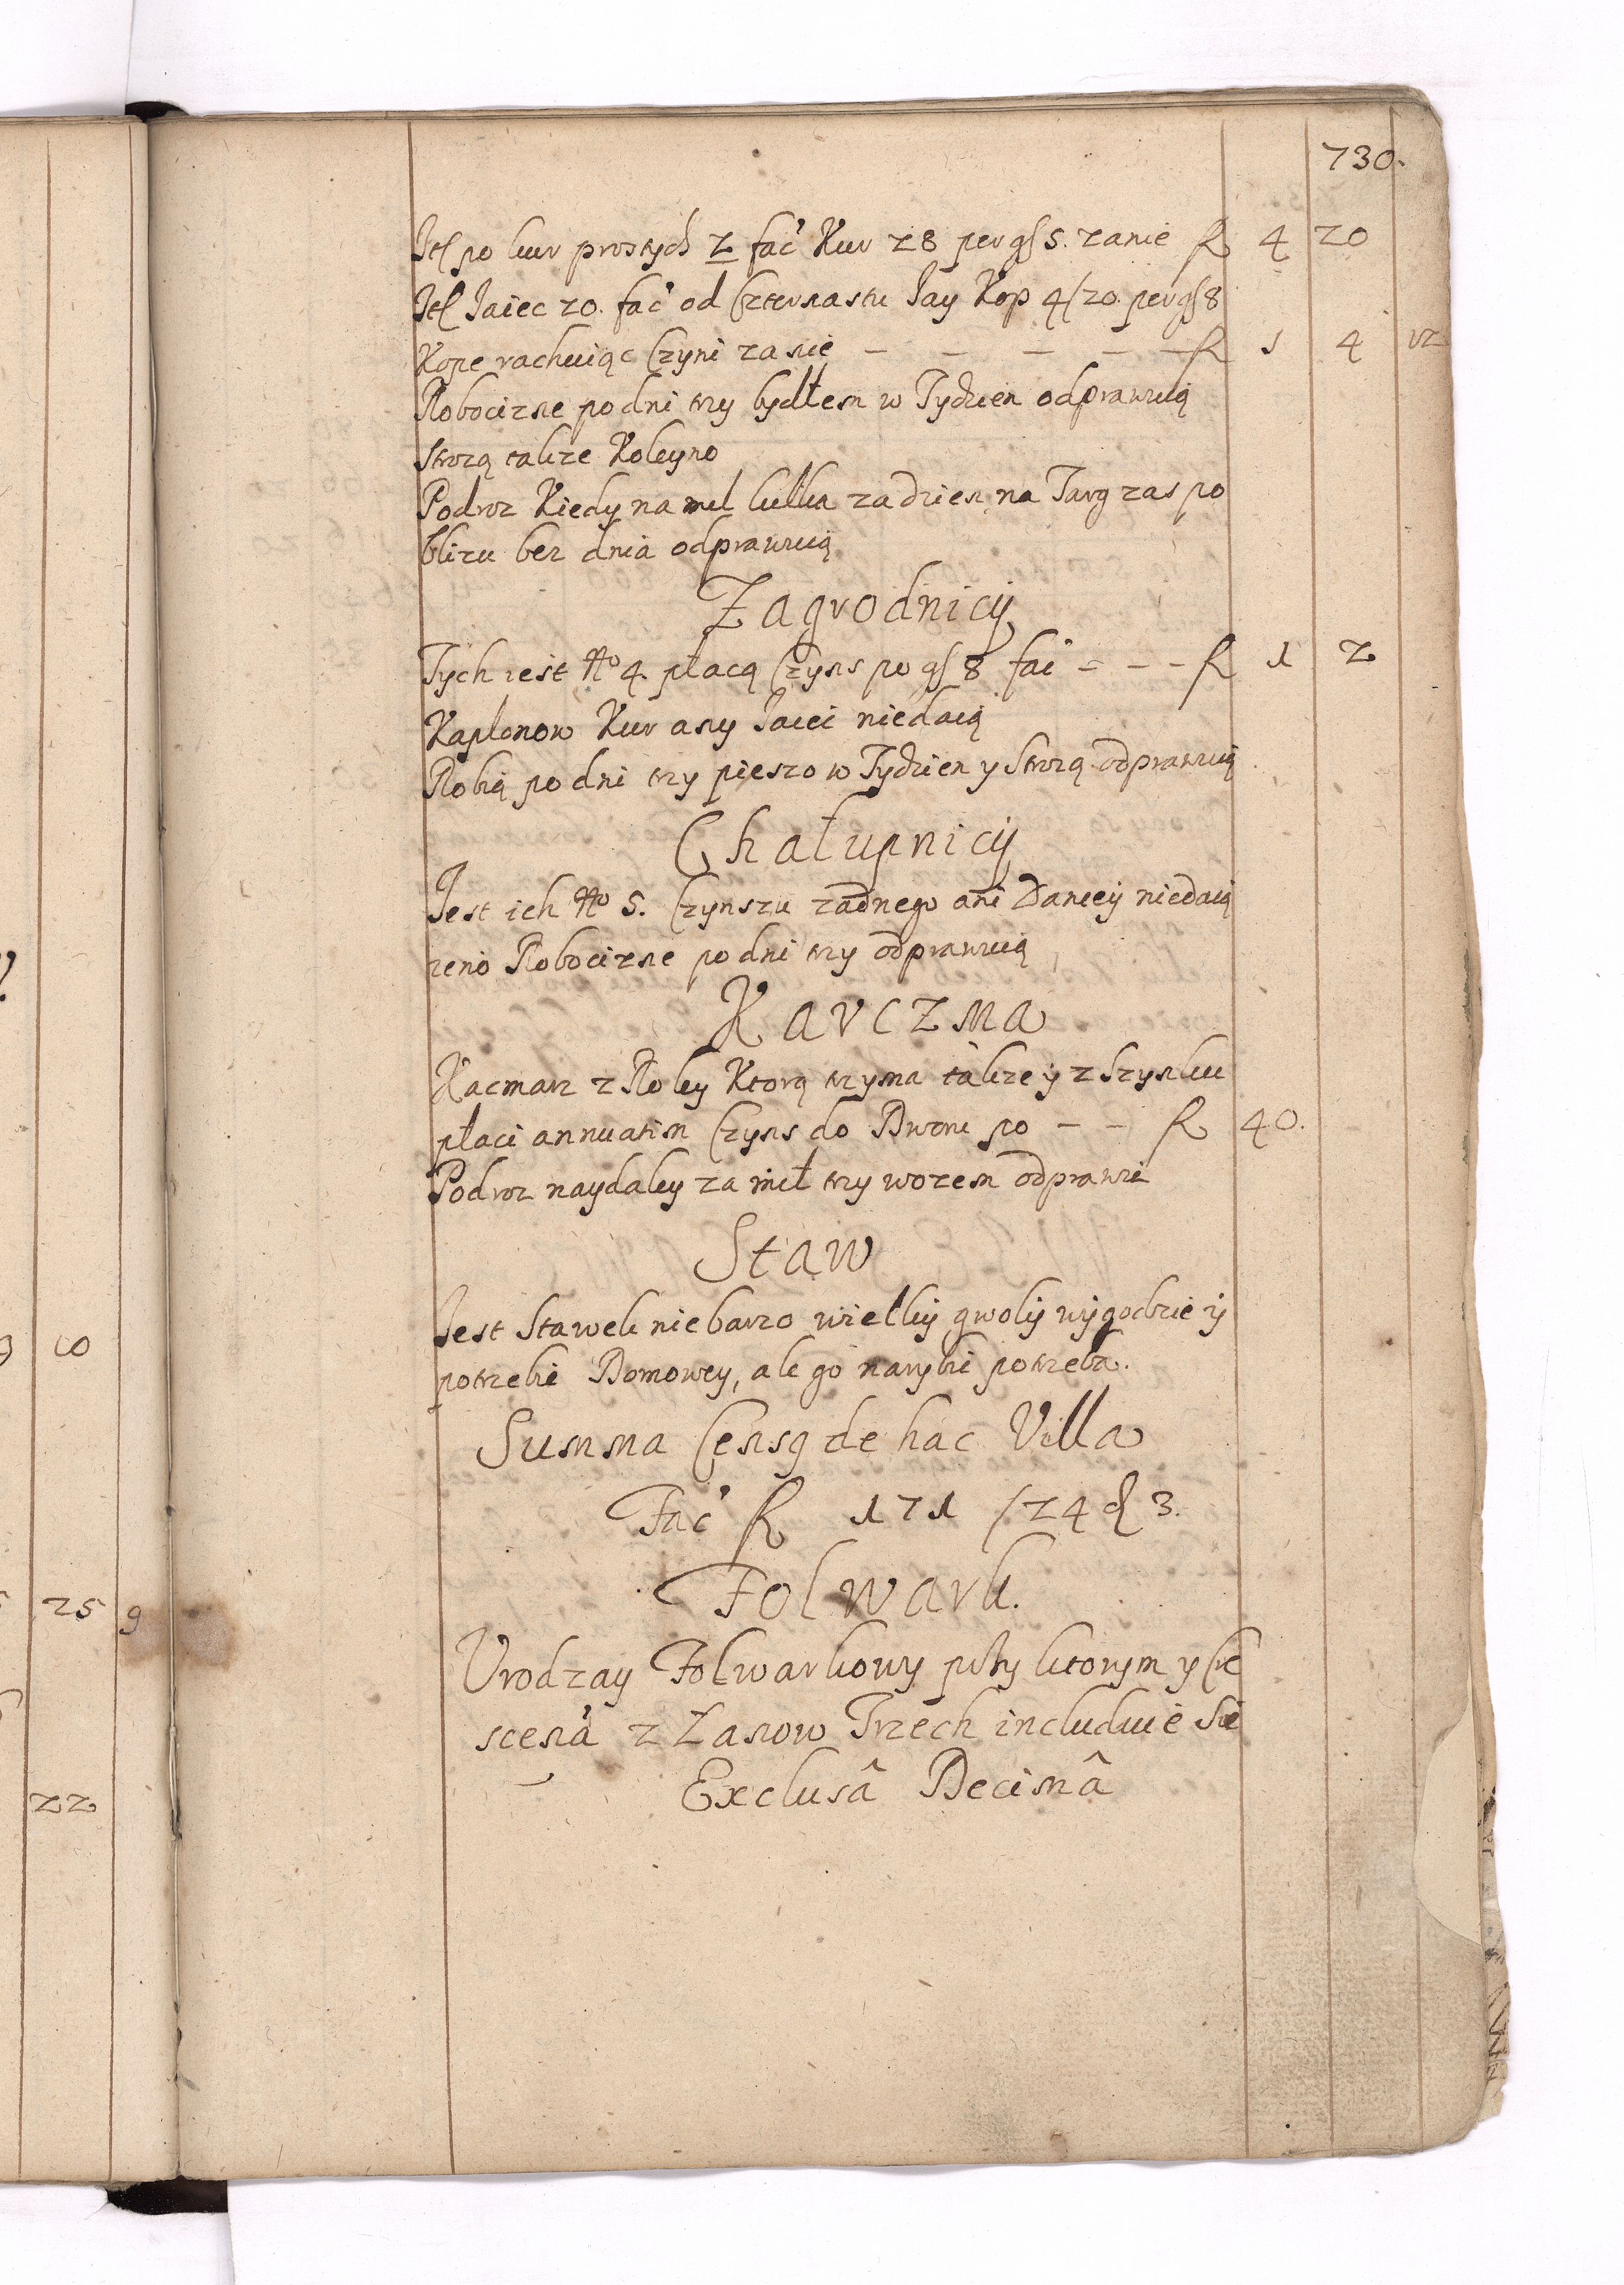 730.
It po kur prostych 2 fać Kur 28 per gſ 5. zanie fl 4 20
It Jaiec 20. fać od Czternastu Jay Kop 4/20. per gſ 8
Kope rachuiąc Czyni za nie – – – – – fl 1 4 12
Robocizne po dni trzy bydłem w Tydzien odprawuią
Strozą takze Koleyno
Podroz Kiedy na mil kilka za dzien, na Targ zas po
blizu bez dnia odprawuią
Zagrodnicy
Tych iest No 4. płacą Czyns po gſ 8 fać – – – fl 1 2
Kapłonow Kur any Jaiec niedaią
Robią po dni trzy pieszo w Tydzien y Strozą odprawuią
Chałupnicy
Jest ich No 5. Czynszu zadnego ani Daniey niedaią
zeno Robocizne po dni trzy odprawuią
Karczma
Kacmarz z Roley Ktorą trzyma takze y z Szynku
płaci annuatim Czyns do Dworu po – – fl 40.
Podroz naydaley za mil trzy wozem odprawie
Staw
Jest Stawek nie barzo wielky gwoly wygodzie y
potrzebie Domowey, ale go narybić potrzeba.
Summa Censq de hac Villa
Fać fl 171 /24 ₰ 3.
Folwark.
Urodzay Folwarkowy przy ktorym y Cre
scená z Łanow Trzech includuie sie
Exclusâ Decimâ
9 10
25 9
22